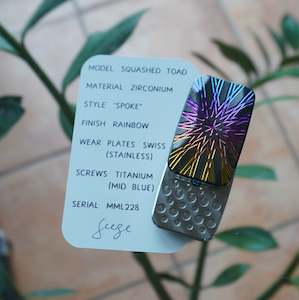 MODEL SQUASHED TOAD
MATERIAL ZIRCONIUM
STYLE "SPOKE"
FINISH RAINBOW
WEAR PLATES SWISS
(STAINLESS)
SCREWS TITANIUM
(MID BLUE)
SERIAL MML228